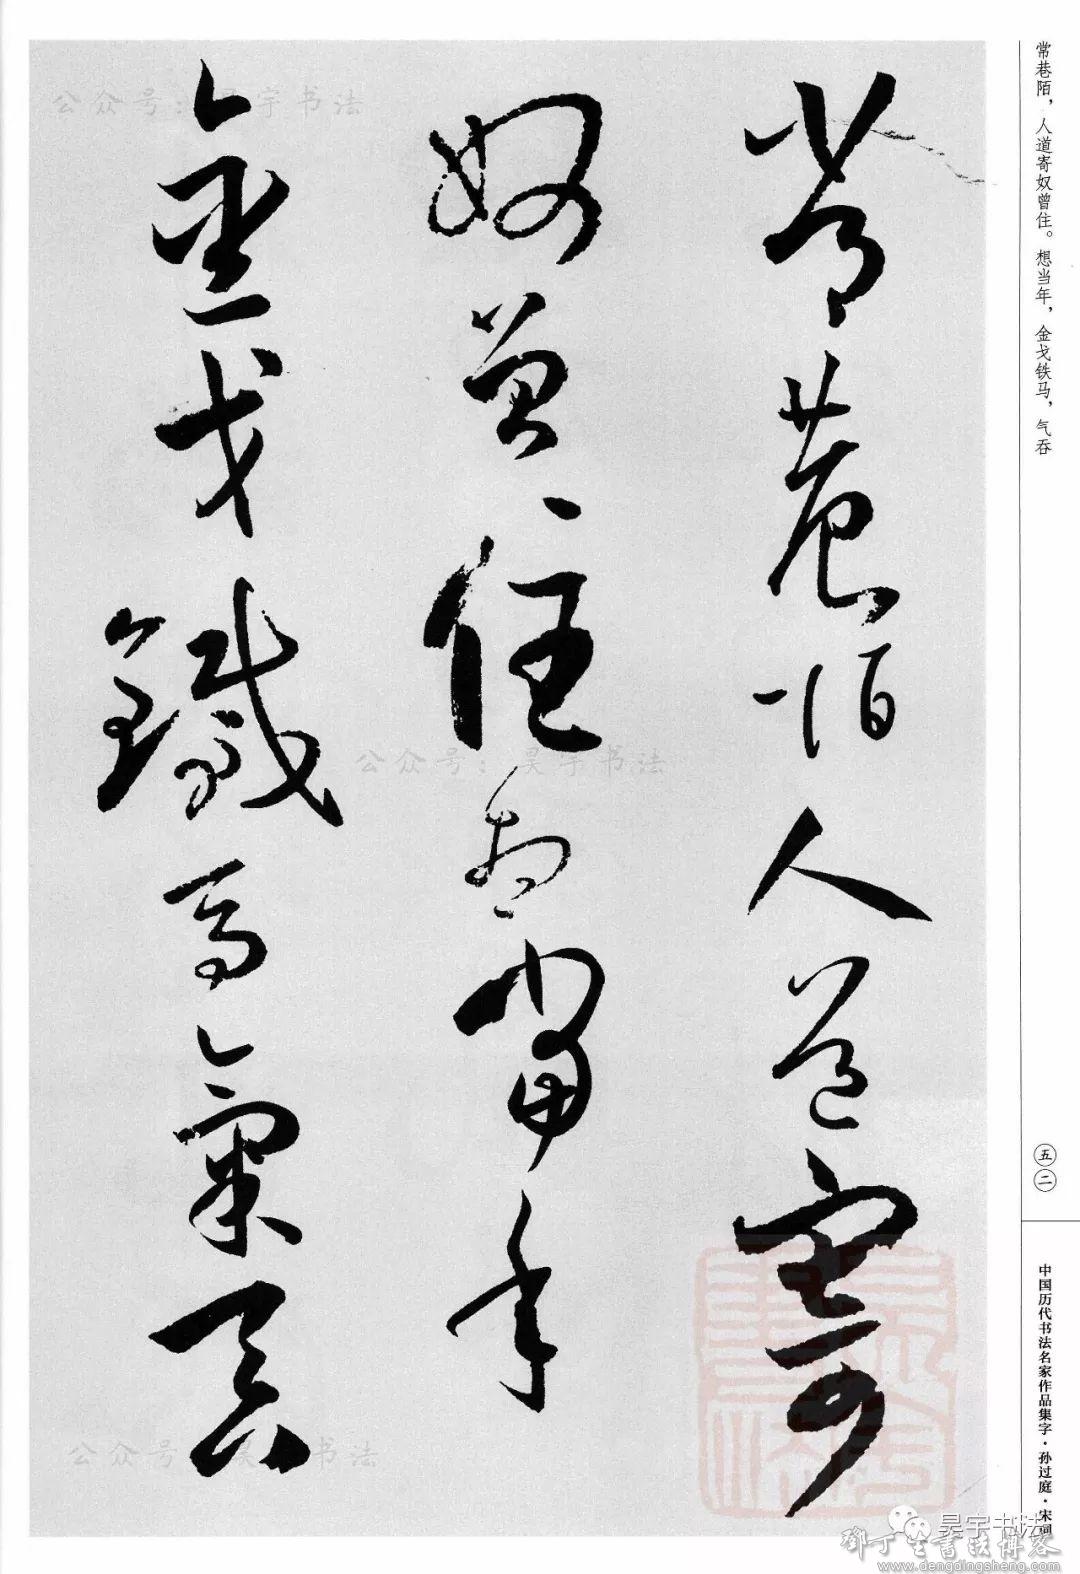 常巷陌人道寄
奴曾住想当年
金戈鐵马氣吞
常巷陌，人道寄奴曾住。想当年，金戈铁马，气吞
五二
中国历代书法名家作品集字·孙过庭·宋词
公众号：昊宇书法
公众号：昊宇书法
公众号：昊宇书法
昊宇书法
鄧丁生書法博客
www.dengdingsheng.com